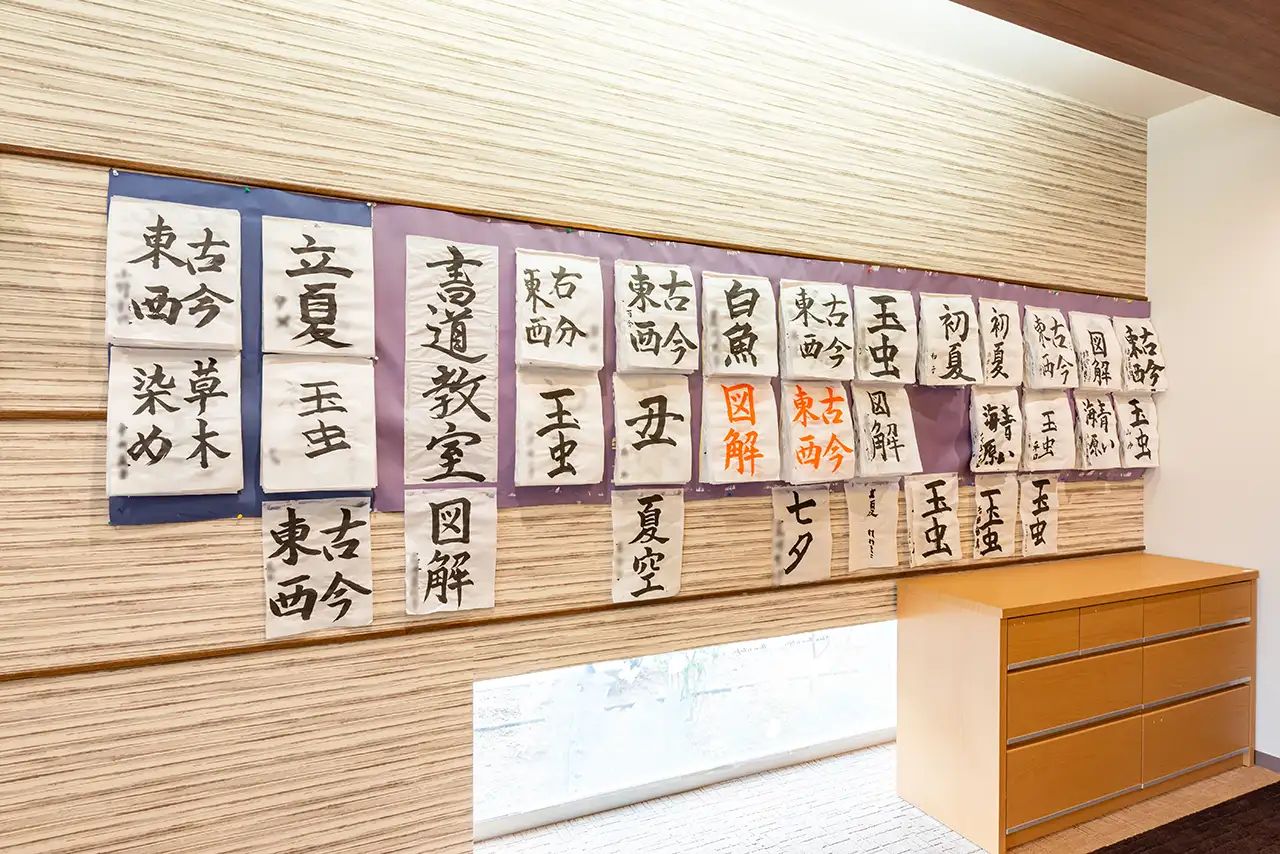 古今
東西
立夏
書道教室
右分
東西
古今
東西
白魚
古今
東西
玉虫
初夏
初夏
古今
東西
図解
古今
東西
草木
染め
玉虫
玉虫
丑
図解
古今
東西
図解
青い
海源
玉虫
青い
海源
玉虫
古今
東西
図解
夏空
七夕
玉虫
玉虫
玉虫